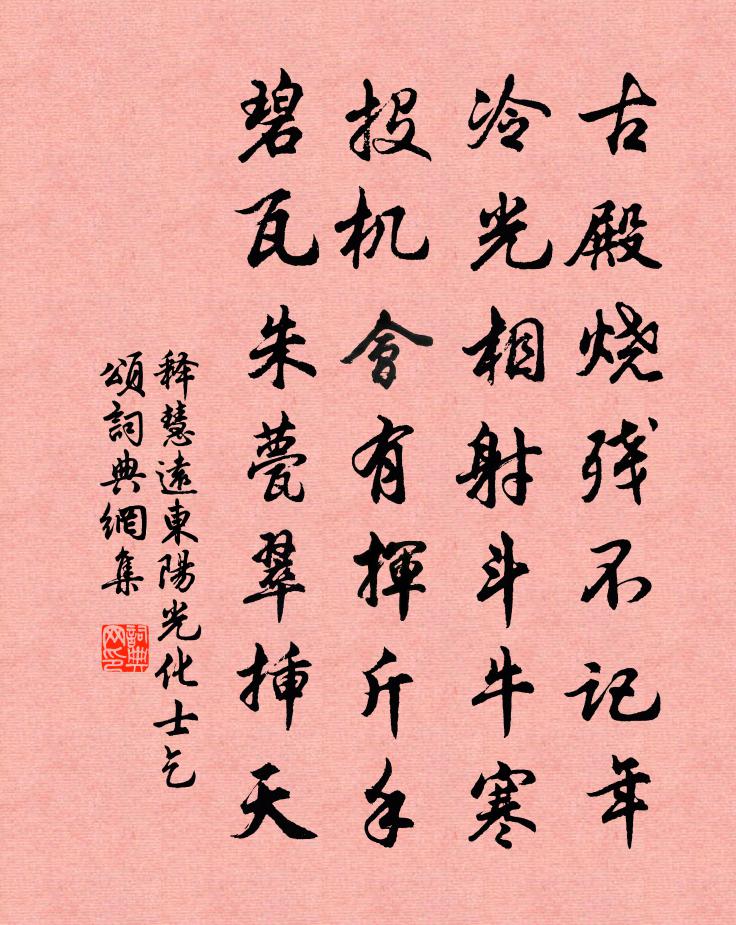 古殿烧残不记年
冷光相射斗牛寒
投机會有揮斤手
碧瓦朱甍翠插天
释慧遠東陽光化士乞
頌詞典網集
詞典网印